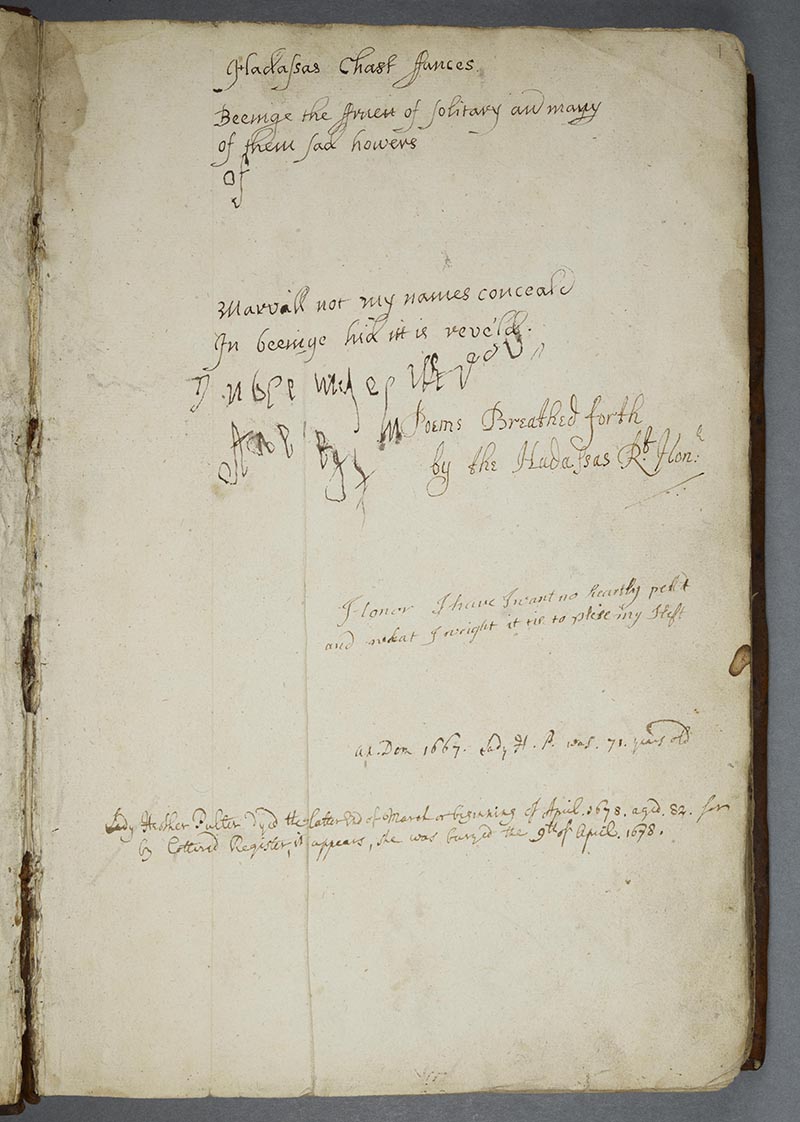 Hadassas Chast Fances
Beeinge the fruett of solitary and many
of them sad howers
Of
Marvill not my names conceald
In beeinge hid itt is reveild.
Poems Breathed forth
by the Hadassas Rt. Hon:e
Honor I have I want no
and what I wright it tis to plese my
1667. Lady H. P. was. 71. years old
Lady Hesther Pulter Dyed the latter End of March or beginning of April. 1678. aged. 82. for
by Register, it appears, she was buryed the 9th of April. 1678.